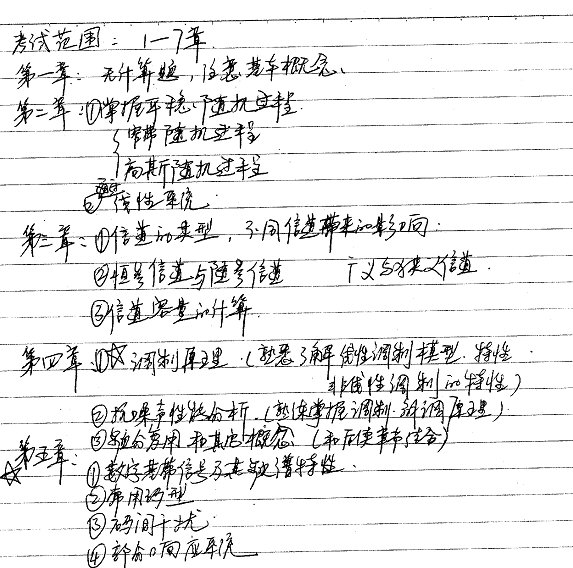 考试范围：1—7章
第一章：无计算题，注意基本概念、
第二章：①掌握平稳随机过程
窄带随机过程
高斯随机过程
② 线性系统
第三章：①信道的类型，不同信道带来的影响
②恒参信道与随参信道 广义与狭义信道.
③信道容量的计算
第四章 ①☆调制原理.（熟悉了解线性调制模型.特性
非线性调制的特性）
②抗噪声性能分析.（熟练掌握调制.解调原理）
③频分复用和其它概念（和后续章节结合）
☆第五章：
①数字基带信号及其频谱特性.
②常用码型
③码间干扰
④部分响应系统